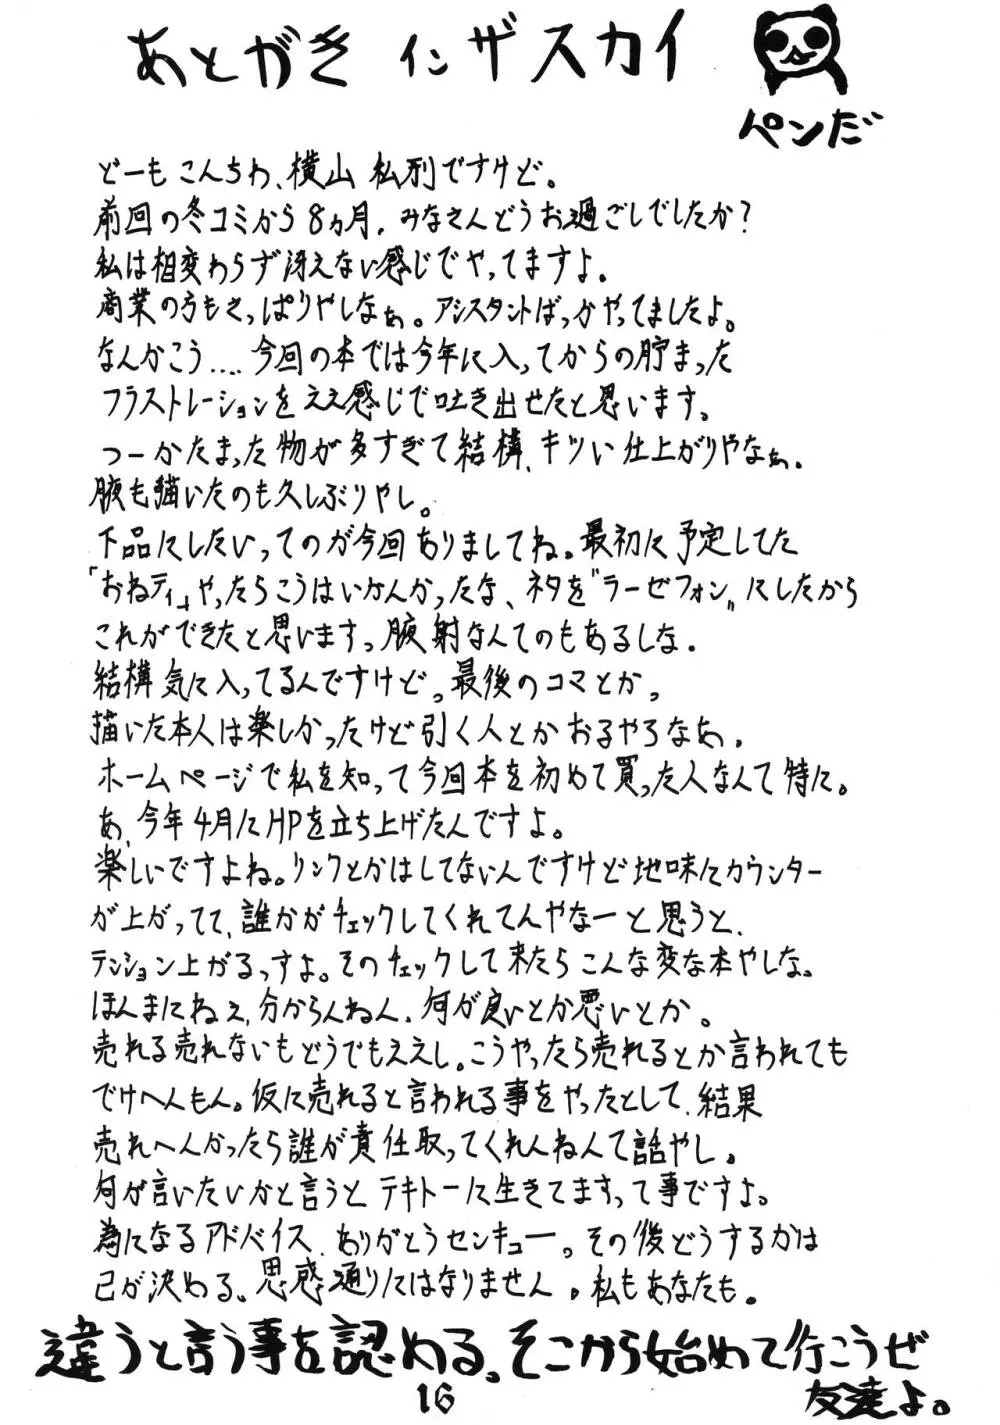 あとがき インザスカイ
ペンだ
どーもこんちわ、横山私刑ですけど。
前回の冬コミから8ヵ月、みなさんどうお過ごしでしたか?
私は相変わらず冴えない感じでやってますよ。
商業の方もさっぱりやしなぁ。アシスタントばっかやってましたよ。
なんかこう‥‥今回の本では今年に入ってからの貯まった
フラストレーションをええ感じで吐き出せたと思います。
つーかたまった物が多すぎて結構、キツい仕上がりやなぁ。
腋も描いたのも久しぶりやし。
下品にしたいってのが今回ありましてね。最初に予定してた
「おねティ」やったらこうはいかんかったな、ネタを〝ラーゼフォン〟にしたから
これができたと思いますっ 腋射なんてのもあるしな。
結構気に入ってるんですけどっ最後のコマとかっ
描いた本人は楽しかったけど引く人とかおるやろなあ。
ホームページで私を知って今回本を初めて買った人なんて特に。
あ、今年4月にHPを立ち上げたんですよ。
楽しいですよね。リンクとかはしてないんですけど地味にカウンター
が上がってて、誰かがチェックしてくれてんやなーと思うと、
テンション上がるっすよ。そのチェックして来たらこんな変な本やしな。
ほんまにねぇ、分からんねん、何が良いとか悪いとか。
売れる売れないもどうでもええし。こうやったら売れるとか言われても
でけへんもん。仮に売れると言われる事をやったとして、結果
売れへんかったら誰が責任取ってくれんねんて話やし。
何が言いたいかと言うとテキトーに生きてますって事ですよ。
為になるアドバイス、ありがとうセンキューっ その後どうするかは
己が決める。思惑通りにはなりません。私もあなたも。
違うと言う事を認める。そこから始めて行こうぜ
友達よ。
16